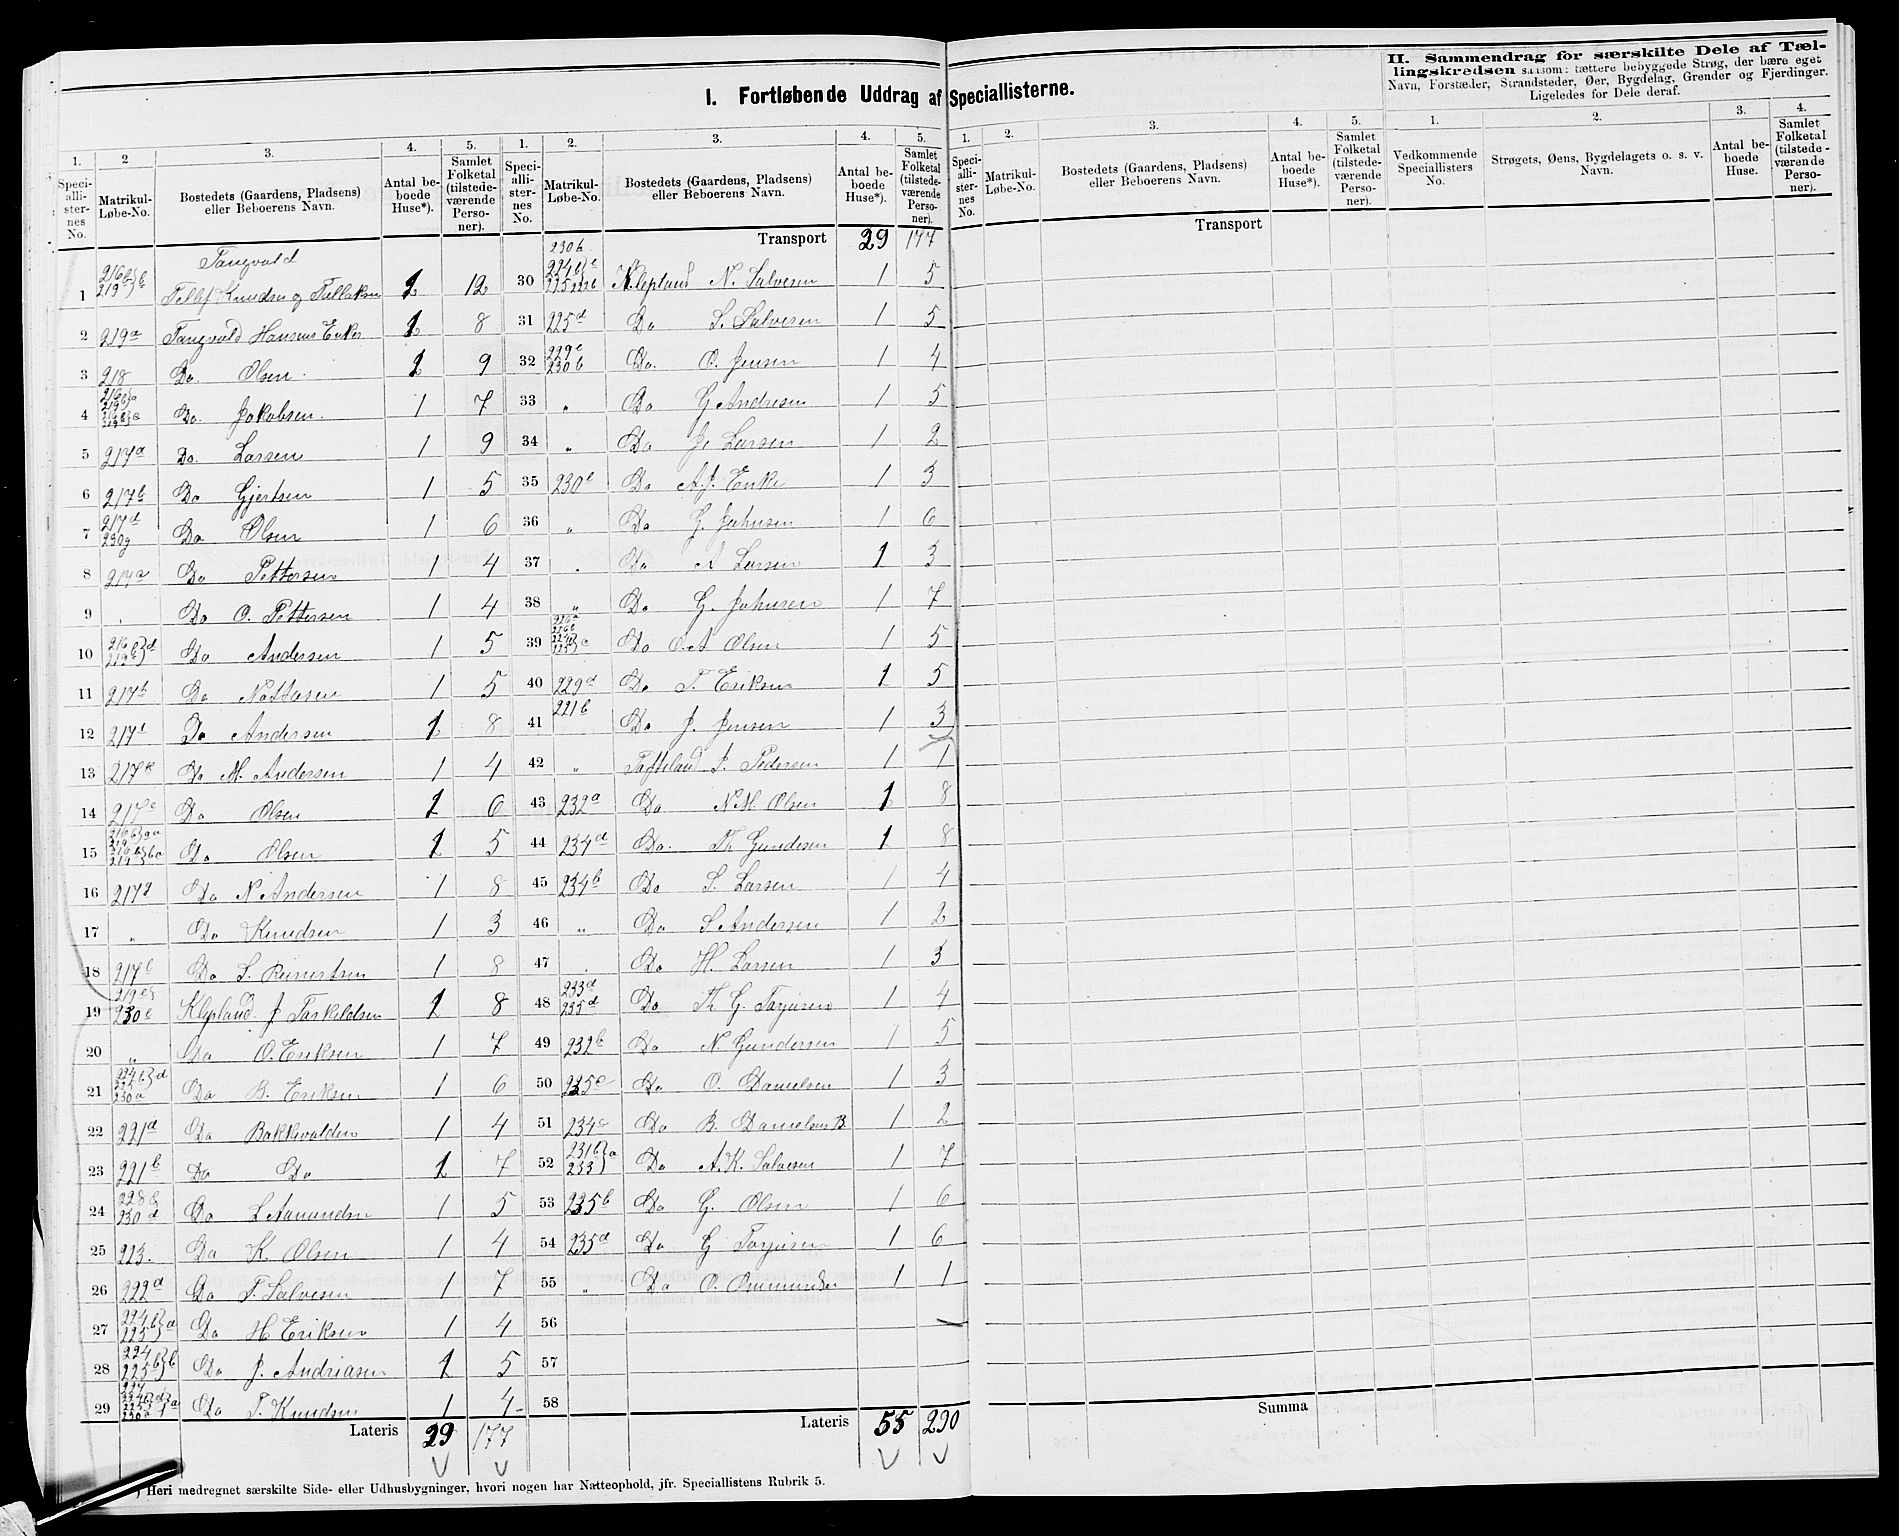 I. Fortløbende Uddrag af Speciallisterne.
II. Sammendrag for særskilte Dele af Tæl-
lingskredsen saasom: tættere bebyggede Strøg, der bære eget
Navn, Forstæder, Strandsteder, Øer, Bygdelag, Grender og Fjerdinger.
Ligeledes for Dele deraf.
1. 2 3. 4. 5.
Speci-alli-ster-nes No. Matrikul-Løbe-No. Bostedets (Gaardens, Pladsens) eller Beboerens Navn. Antal be-boede Huse*). Samlet Folketal (tilstede-værende Perso-ner).
Tangvald
1 Knudsen og 12
2 219a Tangvald Hansens Enke 1 8
3 218 Do. Olsen 1 9
4 Do. Jakobsen 1 7
5 217a Do. Larsen 1 9
6 217b Do Gjertsen 1 5
7 217d 230g Do Olsen 1 6
8 217a Do Pettersen 1 4
9 Do O. Pettersen 1 4
10 216b 219b}d Do Andersen 1 5
11 217h Do 1 5
12 Do Andersen 1 8
13 217k Do M. Andersen 1 4
14 217c Do Olsen 1 6
15 Do Olsen 1 5
16 217g Do N Andersen 1 8
17 " Do Knudsen 1 3
18 217l Do S. Reinertsen 1 8
19 230e Klepland J Tarkildsen 1 8
20 " Do O. Eriksen 1 7
21 230a Do B. Eriksen 1 6
22 221a Do Bakkevolden 1 4
23 221b Do Do 1 7
24 230d Do S Aanundsn 1 5
25 223. Do K Olsen 1 4
26 222a Do T. Salvesen 1 7
27 224b 225}a Do H Eriksen 1 4
28 224 225b}b Do J. Andriasen 1 5
29 Do T. Knudsen 1 4
Lateris 29 177
1. 2. 3. 4. 5.
Speci-alli-ster-nes No. Matrikul-Løbe-No. Bostedets (Gaardens, Pladsens) eller Beboerens Navn. Antal be-boede Huse*). Samlet Folketal (tilstede-værende Perso-ner).
230b Transport 29 177
30 Klepland N. Salvesen 1 5
31 225d Do S. Salvesen 1 5
32 229c 230b Do. O. Jensen 1 4
33 " Do G Andresen 1 5
34 " Do J. Larsen 1 2
35 Do A.J. Enke 1 3
36 " Do G. Johnsen 1 6
37 Do A Larsen 1 3
38 " Do G. Johnsen 1 7
39 Do O.A Olsen 1 5
40 229d Do T. Eriksen 1 5
41 221b Do J. Jensen 1 3
42 " Tofteland J. Pedersen 1 1
43 232a Do N.M. Olsen 1 8
44 234d Do. Th Gundersen 1 8
45 234b Do S. Larsen 1 4
46 " Do S Andersen 1 2
47 Do H. Larsen 1 3
48 233d 235d Do Th G. Torjusen 1 4
49 232b Do N. Gundersen 1 5
50 235c Do O. Danielsen 1 3
51 234c Do B. Danielsen B. 1 2
52 231b 233}a Do A.K. Salvesen 1 7
53 235b Do G. Olsen 1 6
54 235a Do G Torjusen 1 6
55 " Do O. 1 1
56
57
58
Lateris 55 290
1. 2. 3. 4. 5.
Speci-alli-ster-nes No. Matrikul-Løbe-No. Bostedets (Gaardens, Pladsens) eller Beboerens Navn. Antal be-boede Huse*). Samlet Folketal (tilstede-værende Perso-ner).
Transport
Summa
1. 2. 3. 4.
Vedkommende Speciallisters No. Strøgets, Øens, Bygdelagets o. s. v. Navn. Antal be-boede Huse. Samlet Folketal (tilstede-værende Perso-ner).
*) Heri medregnet særskilte Side- eller Udhusbygninger, hvori nogen har Natteophold, jfr. Speciallistens Rubrik 5.